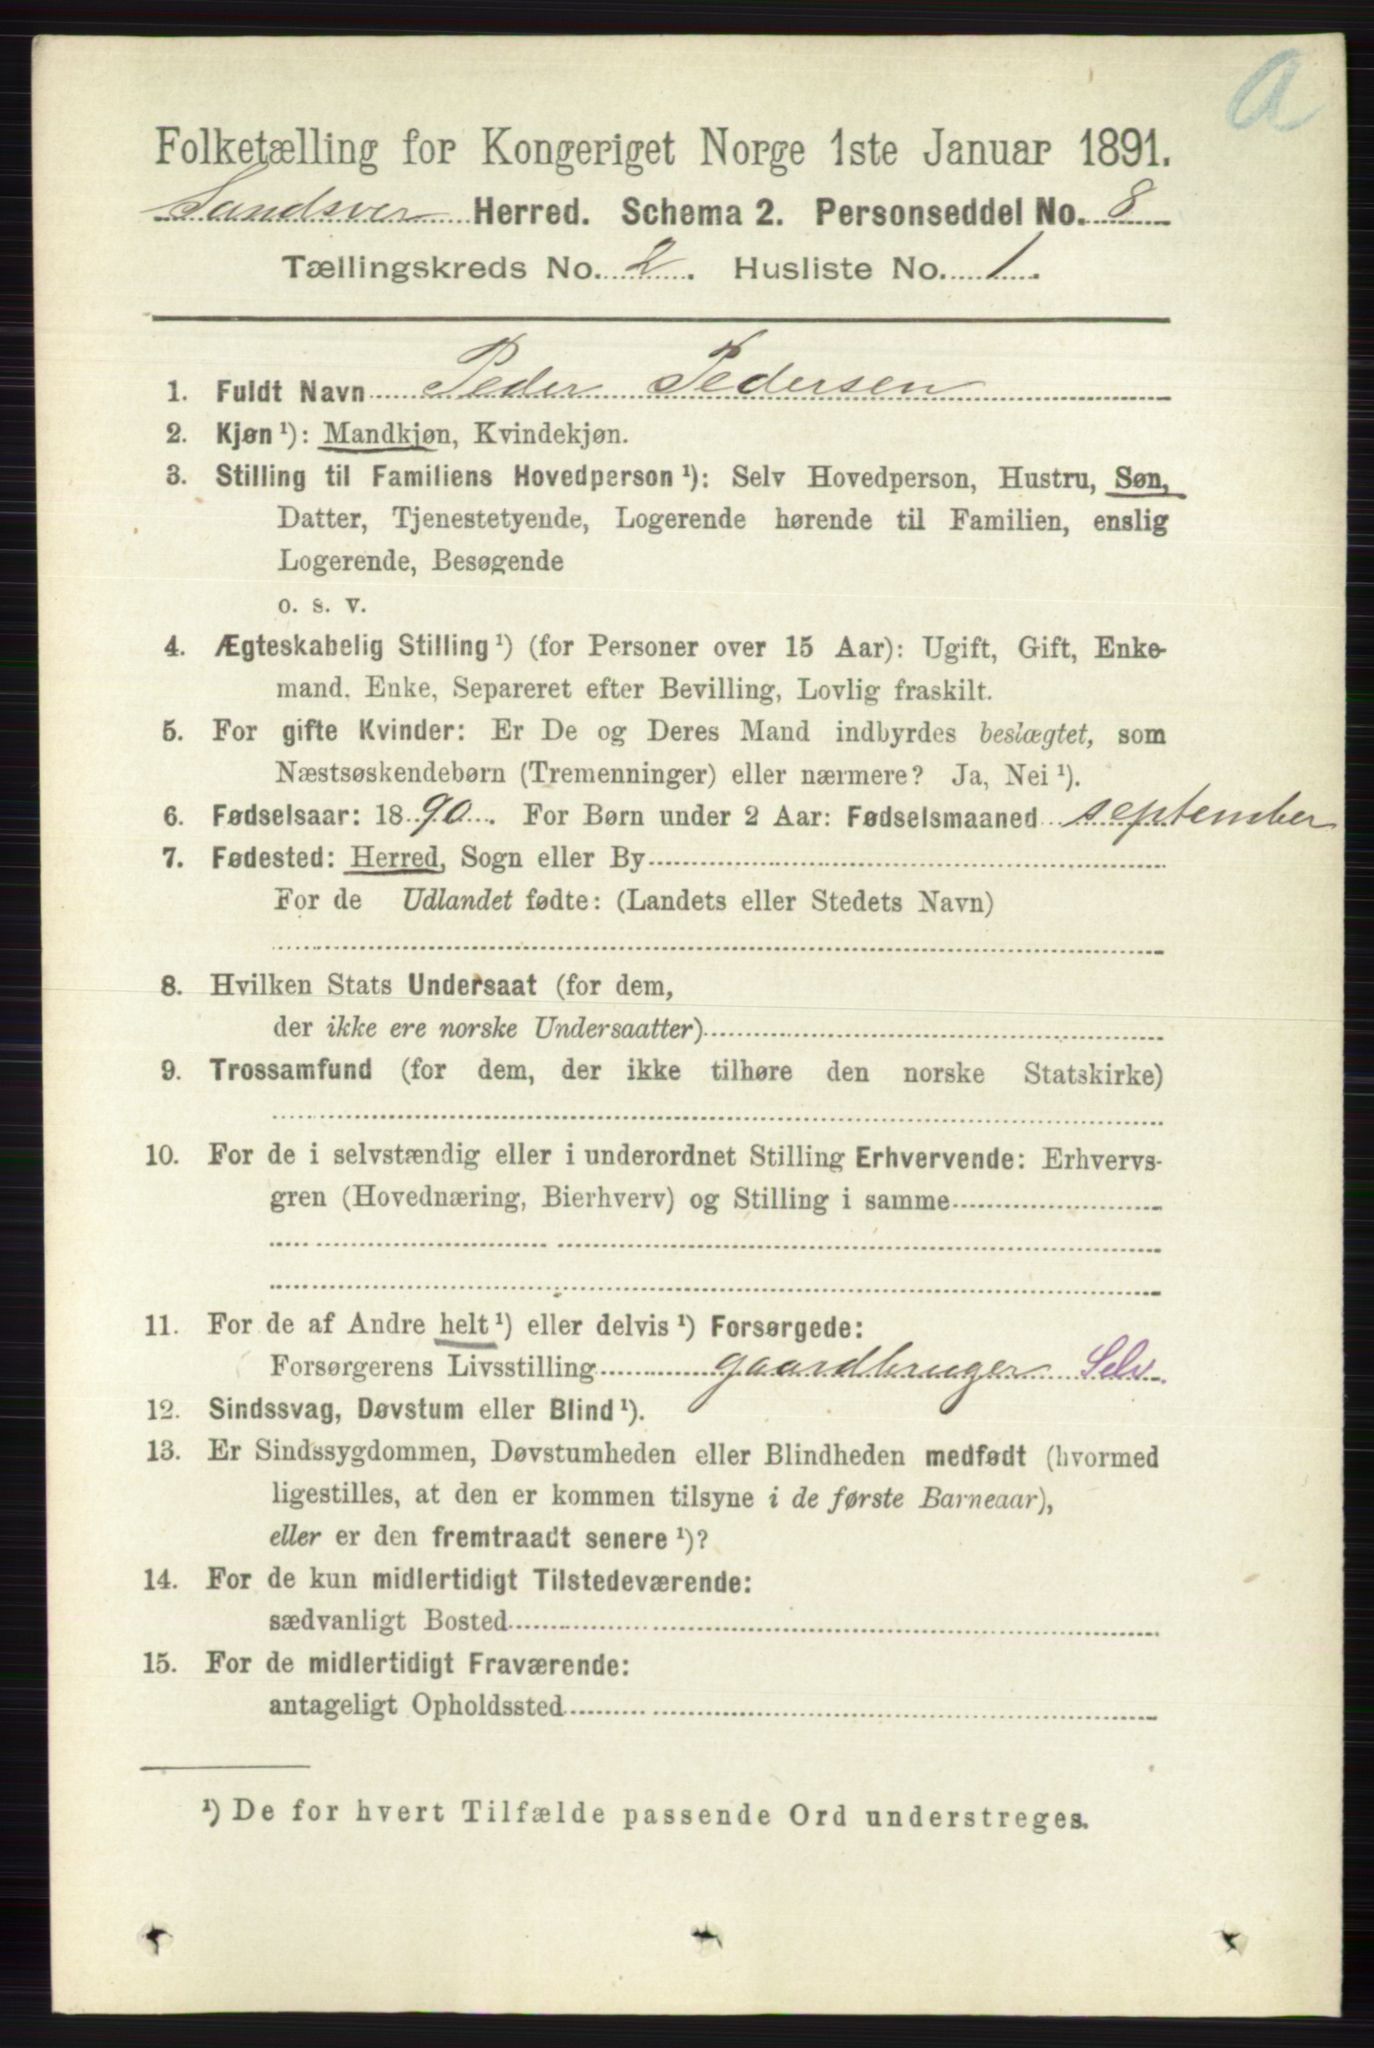 a
Folketælling for Kongeriget Norge 1ste Januar 1891.
Sandsver Herred. Schema 2. Personseddel No. 8
Tællingskreds No. 2. Husliste No. 1.
1. Fuldt Navn Peder Pedersen
2. Kjøn ¹): Mandkjøn, Kvindekjøn.
3. Stilling til Familiens Hovedperson ¹): Selv Hovedperson, Hustru, Søn,
Datter, Tjenestetyende, Logerende hørende til Familien, enslig
Logerende, Besøgende
o. s. v.
4. Ægteskabelig Stilling ¹) (for Personer over 15 Aar): Ugift, Gift, Enke-
mand, Enke, Separeret efter Bevilling, Lovlig fraskilt.
5. For gifte Kvinder: Er De og Deres Mand indbyrdes beslægtet, som
Næstsøskendebørn (Tremenninger) eller nærmere? Ja, Nei ¹).
6. Fødselsaar: 1890. For Børn under 2 Aar: Fødselsmaaned september
7. Fødested: Herred, Sogn eller By
For de Udlandet fødte: (Landets eller Stedets Navn)
8. Hvilken Stats Undersaat (for dem,
der ikke ere norske Undersaatter)
9. Trossamfund (for dem, der ikke tilhøre den norske Statskirke)
10. For de i selvstændig eller i underordnet Stilling Erhvervende: Erhvervs-
gren (Hovednæring, Bierhverv) og Stilling i samme
11. For de af Andre helt ¹) eller delvis ¹) Forsørgede:
Forsørgerens Livsstilling gaardbruger Selv.
12. Sindssvag, Døvstum eller Blind ¹).
13. Er Sindssygdommen, Døvstumheden eller Blindheden medfødt (hvormed
ligestilles, at den er kommen tilsyne i de første Barneaar),
eller er den fremtraadt senere ¹)?
14. For de kun midlertidigt Tilstedeværende:
sædvanligt Bosted
15. For de midlertidigt Fraværende:
antageligt Opholdssted
¹) De for hvert Tilfælde passende Ord understreges.